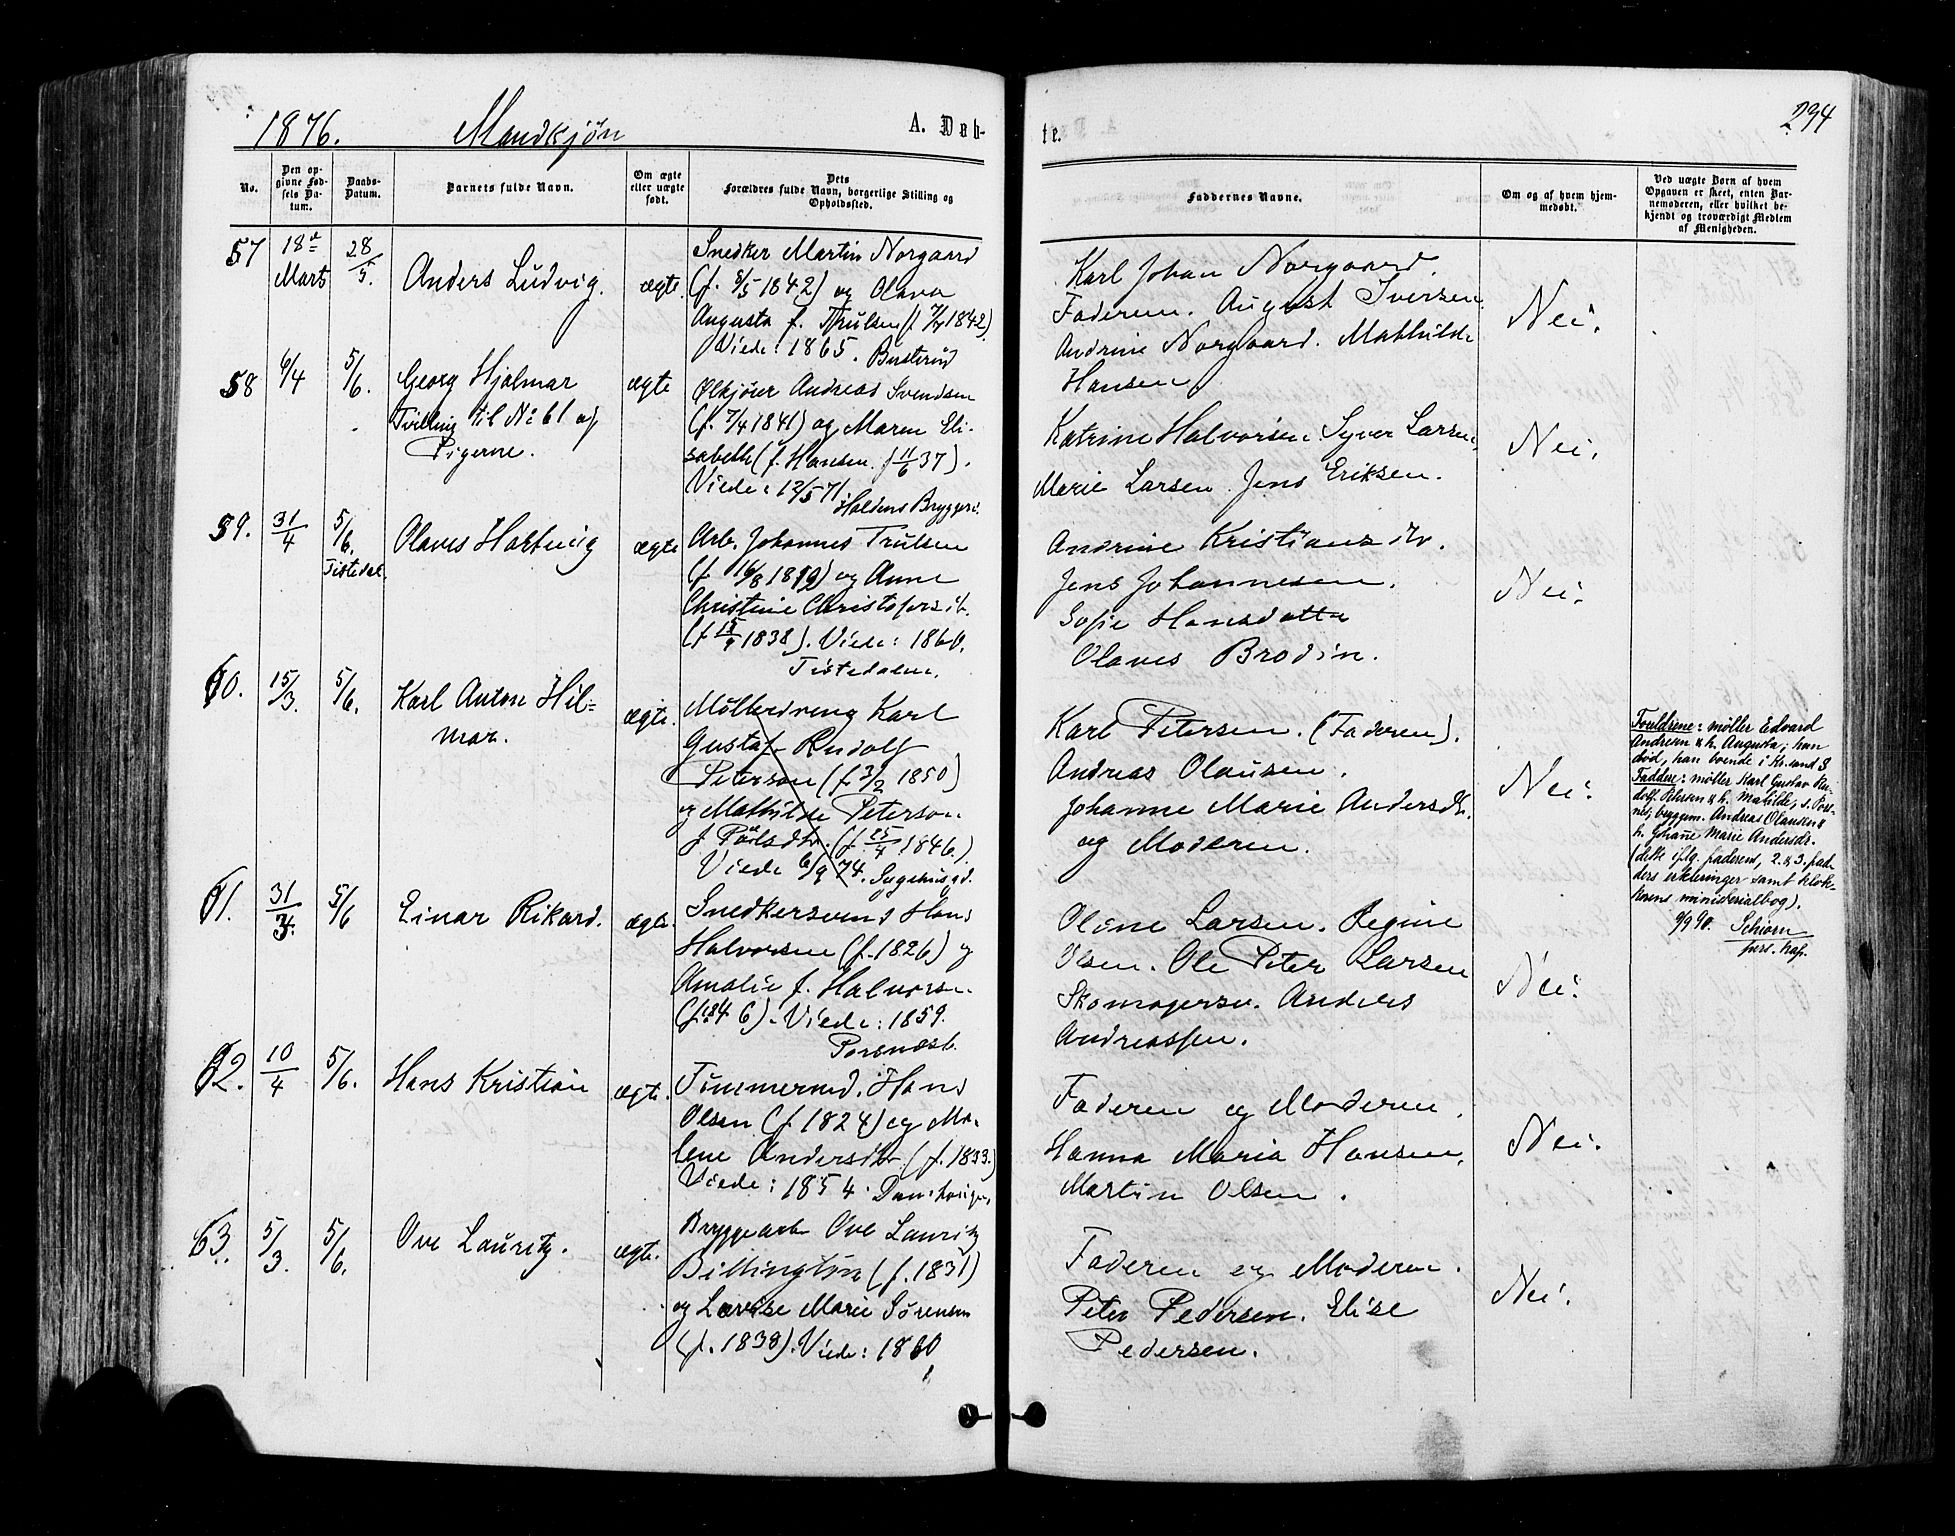 1876. Mandkjøn A. Døb-
No.
Den op-
givne Fød-
sels Da-
tum.
Daabs-
Datum.
Barnets fulde Navn.
Om ægte
eller uægte
født.
Dets
Forældres fulde Navn, borgerlige Stilling og
Opholdssted.
57 18de Marts 28/5. Anders Ludvig. ægte.
Snedker Martin Norgaard
(f. 8/5 1842) og Olava
Augusta f. Trulsen (f 7/7 1842)
Viede: 1865. Busterud
58 6/4 5/6. Georg Hjalmar
Tvilling til No 61 af
Pigerne.
ægte
Ølkjører Andreas Svendsen
(f. 7/4 1841) og Maren Eli-
sabeth (f. Hansen. f 11/6 37).
Viede: 12/5 71
Haldens Bryggeri.
59. 31/4 5/6. Tistedal. Olaves Hartvig ægte
Arb. Johannes Trulsen
(f. 16/8 1812) og Anne
Christine Christofersdt.
(f 15/9 1838). Viede: 1860.
Tistedalen.
60. 15/3. 5/6. Karl Anton Hil=
mar.
ægte.
Møllerdreng Karl
Gustaf Rudolf
Peterson (f 3/2 1850)
og Mathilde Peterson
f Pålsdtr. (f 25/4 1846.)
Viede 6/9 74. Sygehusgd.
61. 31/3. 5/6 Einar Rikard. ægte.
Snedkersvend Hans
Halvorsen (f. 1826) og
Amalie f. Halvorse.
(f. 1846). Viede: 1859.
62. 10/4 5/6. Hans Kristian ægte.
Tømmermd. Hans
Olsen (f. 1824) og Ma-
lene Andersdtr (f. 1833.)
Viede: 1854.
63. 5/3. 5/6. Ove Lauritz. ægte.
Bryggearb Ove Lauritz
Billington (f. 1831)
og Lovise Marie Sørensen
(f. 1838). Viede: 1860
te. 294
Faddernes Navne.
Om og af hvem hjem-
medøbt.
Ved uægte Børn af hvem
Opgaven er skeet, enten Bar-
nemoderen, eller hvilket be-
kjendt og troværdigt Medlem
af Menigheden.
Karl Johan Norgaard.
Faderen. August Iversen
Andrine Norgaard. Mathilde
Hansen
Nei.
Katrine Halvorsen. Syver Larsen.
Marie Larsen. Jens Eriksen.
Nei.
Andrine Kristiansdtr.
Jens Johannesen.
Sofie Hansdatte
Olaves Brodin.
Nei.
Karl Petersen. (Faderen).
Andreas Olausen.
Johanne Marie Andersdtr.
og Moderen.
Nei.
Forældrene: møller Edvard
Andresen & h. Augusta; hun
død, han boende i Kr.sand S
Faddere: møller Karl Gustav Ru-
dolf Petersen & h. Matilde, s. Pors-
nes, bryggem. Andreas Olausen &
h. Johanne Marie Andersdr.
(dette iflg. faderens, 2. & 3. fad-
ders erklæringer samt klok-
kerens ministerialbog).
9/9 90. Schiørn
pers. kap.
Olene Larsen. Regine
Olsen. Ole Peter Larsen
Skomagersv. Anders
Andreassen.
Nei.
Faderen og Moderen.
Hanna Maria Hansen.
Martin Olsen.
Nei.
Faderen og Moderen.
Peter Pedersen. Elise
Pedersen.
Nei.